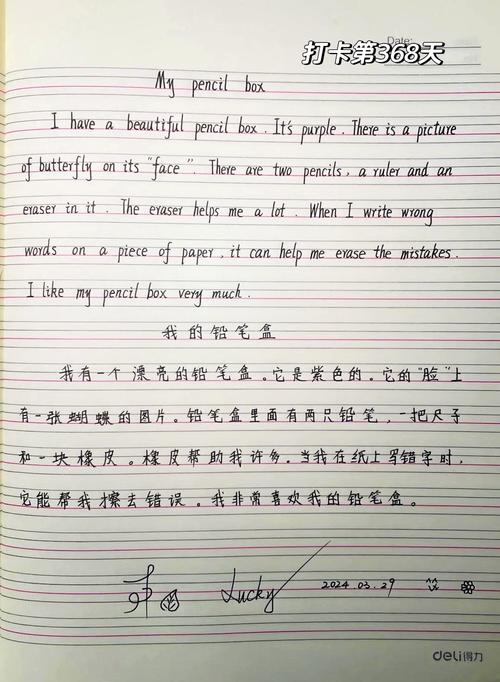 打卡第368天
Date:
My pencil box
I have a beautiful pencil box. It's purple. There is a picture
of butterfly on its "face". There are two pencils, a ruler and an
eraser in it. The eraser helps me a lot. When I write wrong
words on a piece of paper, it can help me erase the mistakes.
I like my pencil box very much.
我的铅笔盒
我有一个漂亮的铅笔盒。它是紫色的。它的"脸"上
有一张蝴蝶的图片。铅笔盒里面有两只铅笔,一把尺子
和一块橡皮。橡皮帮助我许多。当我在纸上写错字时,
它能帮我擦去错误。我非常喜欢我的铅笔盒。
Lucky 2024.03.29
deli得力